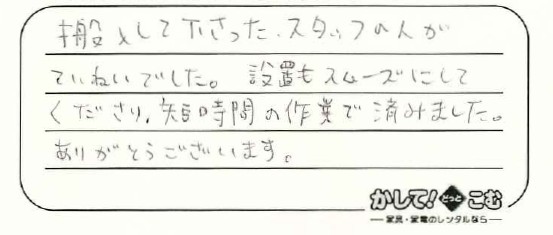 搬入して下さった、スタッフの人が
ていねいでした。設置もスムーズにして
くださり、短時間の作業で済みました。
ありがとうございます。
かして!どっとこむ
家具・家電のレンタルなら